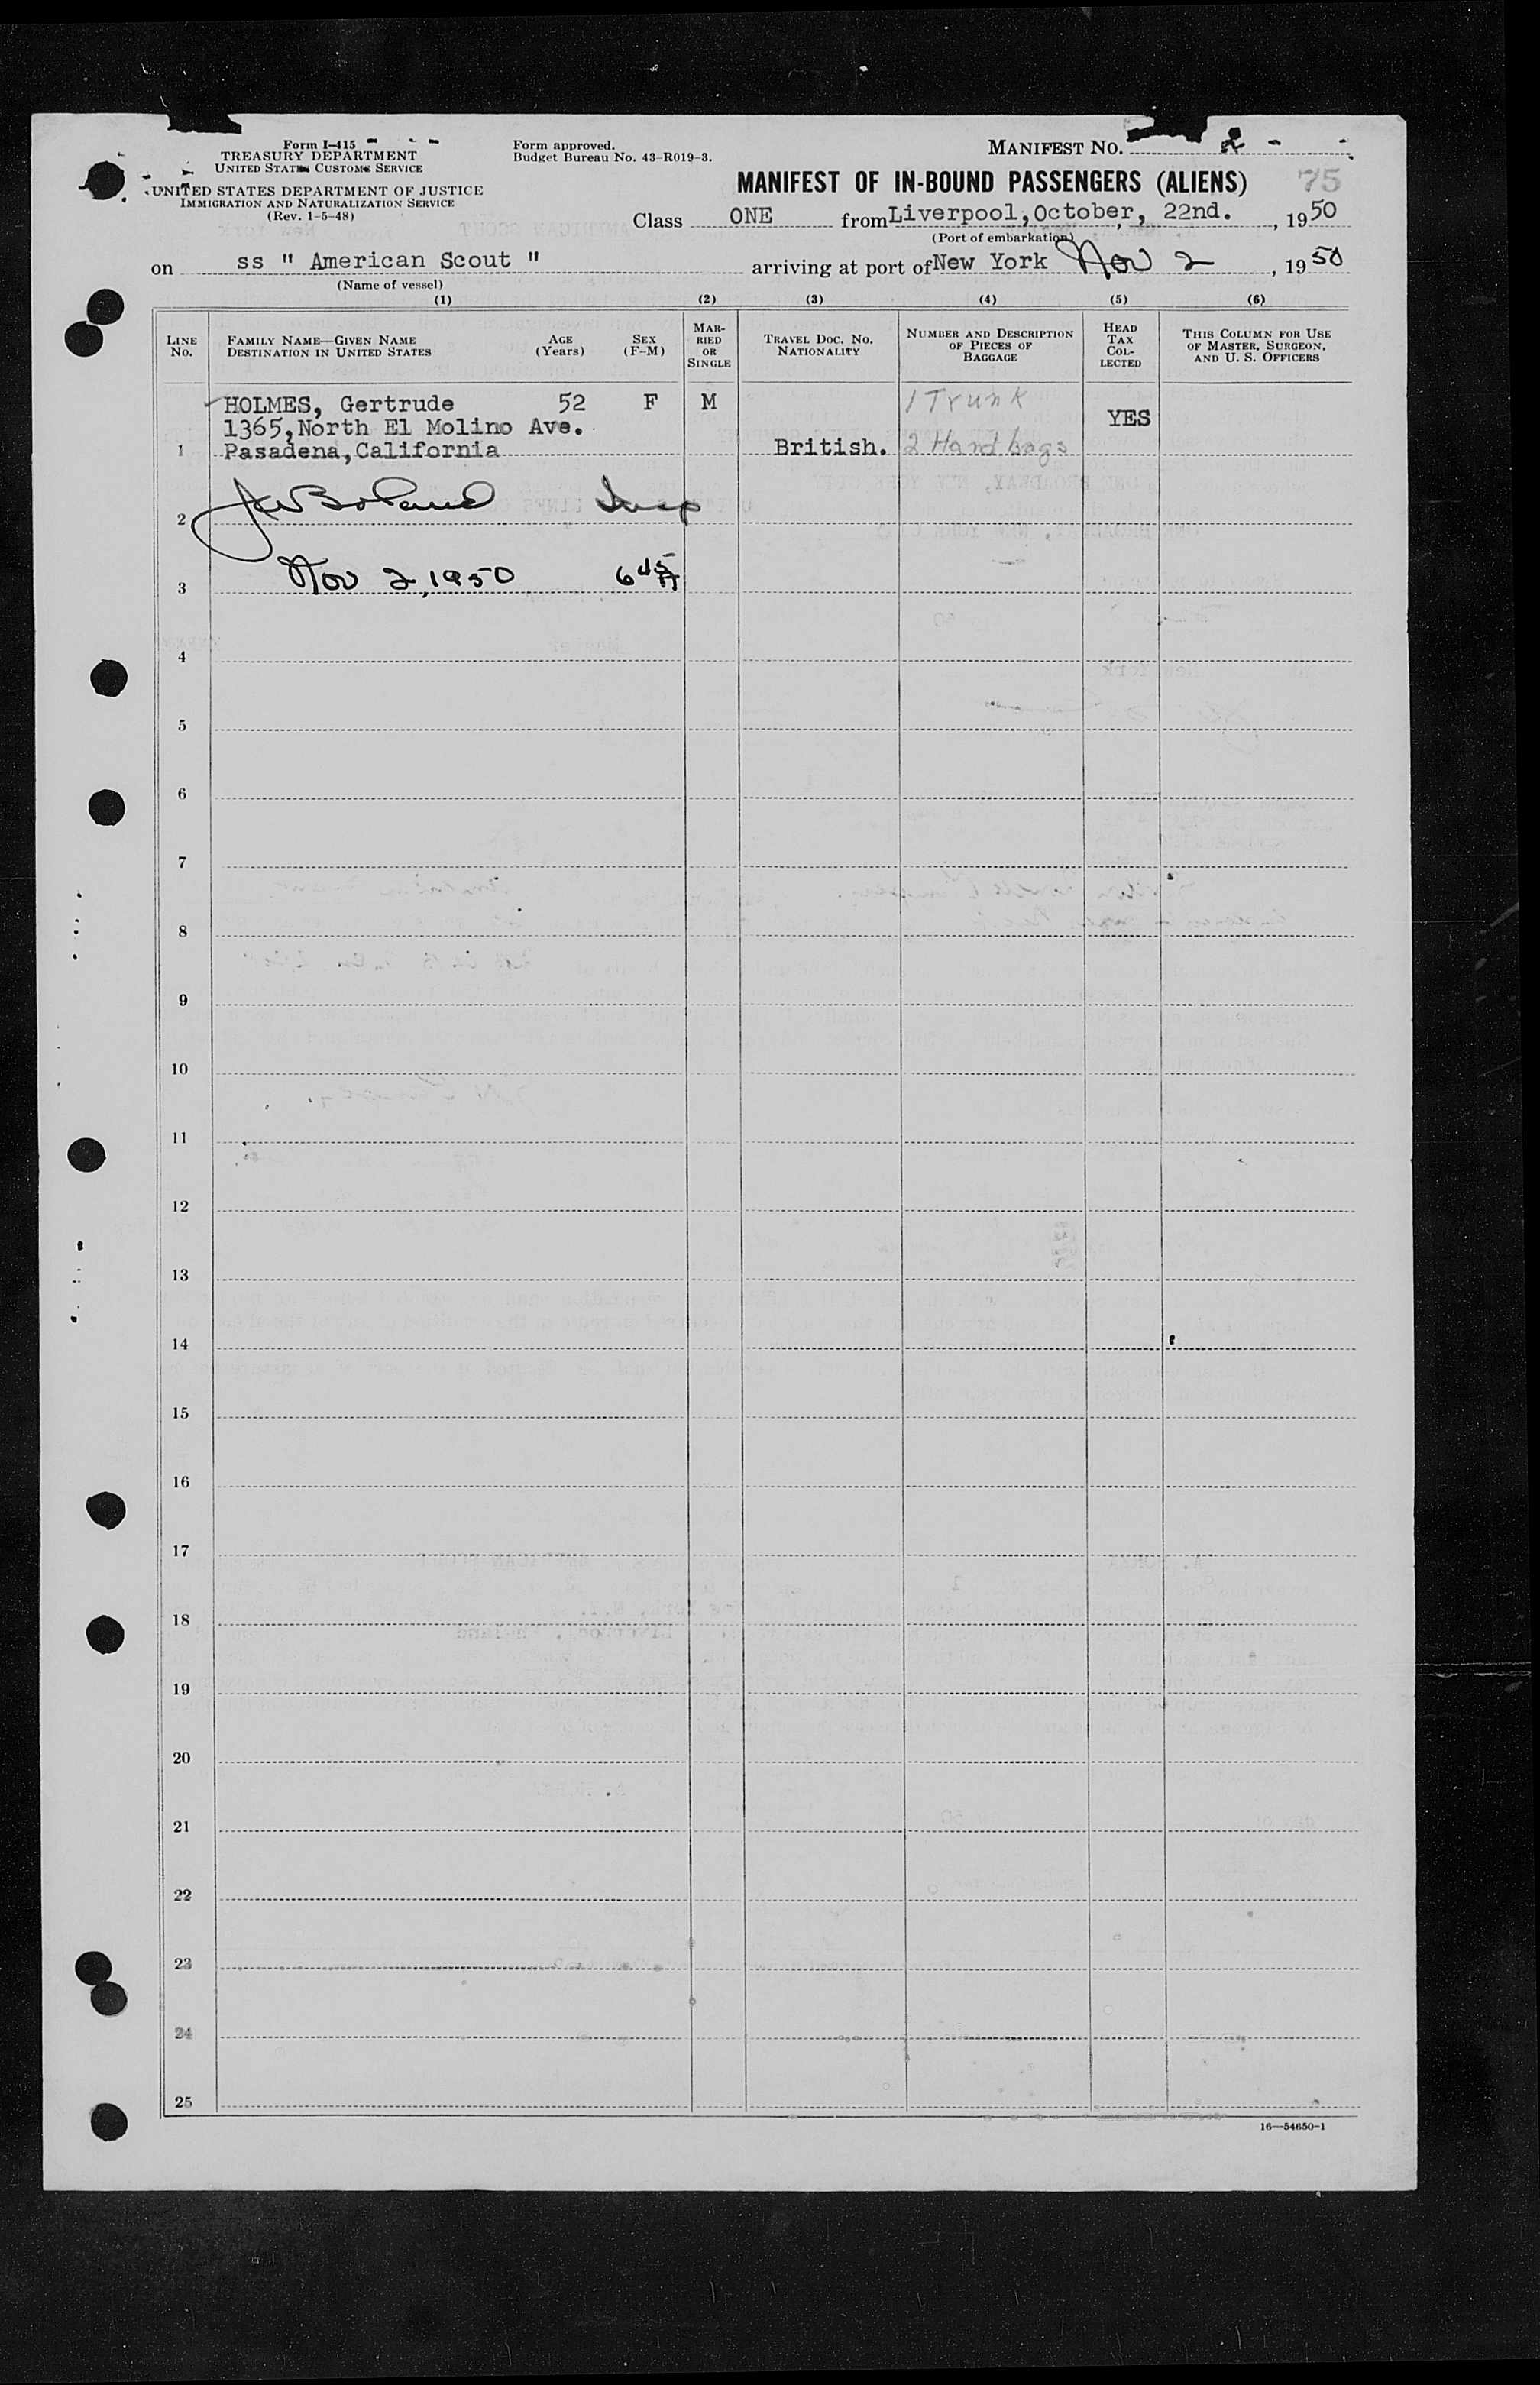 Form I-415
TREASURY DEPARTMENT
UNITED STATES CUSTOMS SERVICE
UNITED STATES DEPARTMENT OF JUSTICE
IMMIGRATION AND NATURALIZATION SERVICE
(Rev. 1-5-48)
Form approved.
Budget Bureau No. 43-R019-3.
MANIFEST No. 2
MANIFEST OF IN-BOUND PASSENGERS (ALIENS) 75
Class ONE from Liverpool, October, 22nd., 1950
(Port of embarkation)
on ss " American Scout " arriving at port of New York Nov 2, 1950
(Name of vessel)
(1) (2) (3) (4) (5) (6)
LINE No.
FAMILY NAME—GIVEN NAME
DESTINATION IN UNITED STATES
AGE (Years)
SEX (F-M)
MAR-RIED OR SINGLE
TRAVEL DOC. NO.
NATIONALITY
NUMBER AND DESCRIPTION OF PIECES OF BAGGAGE
HEAD TAX COL-LECTED
THIS COLUMN FOR USE OF MASTER, SURGEON, AND U. S. OFFICERS
HOLMES, Gertrude 52 F M 1 Trunk
1365, North El Molino Ave. YES
1 Pasadena, California British. 2 Handbags
2 Boland Insp
3 Nov 2, 1950 6 45 A
4
5
6
7
8
9
10
11
12
13
14
15
16
17
18
19
20
21
22
23
24
25
16—54650-1